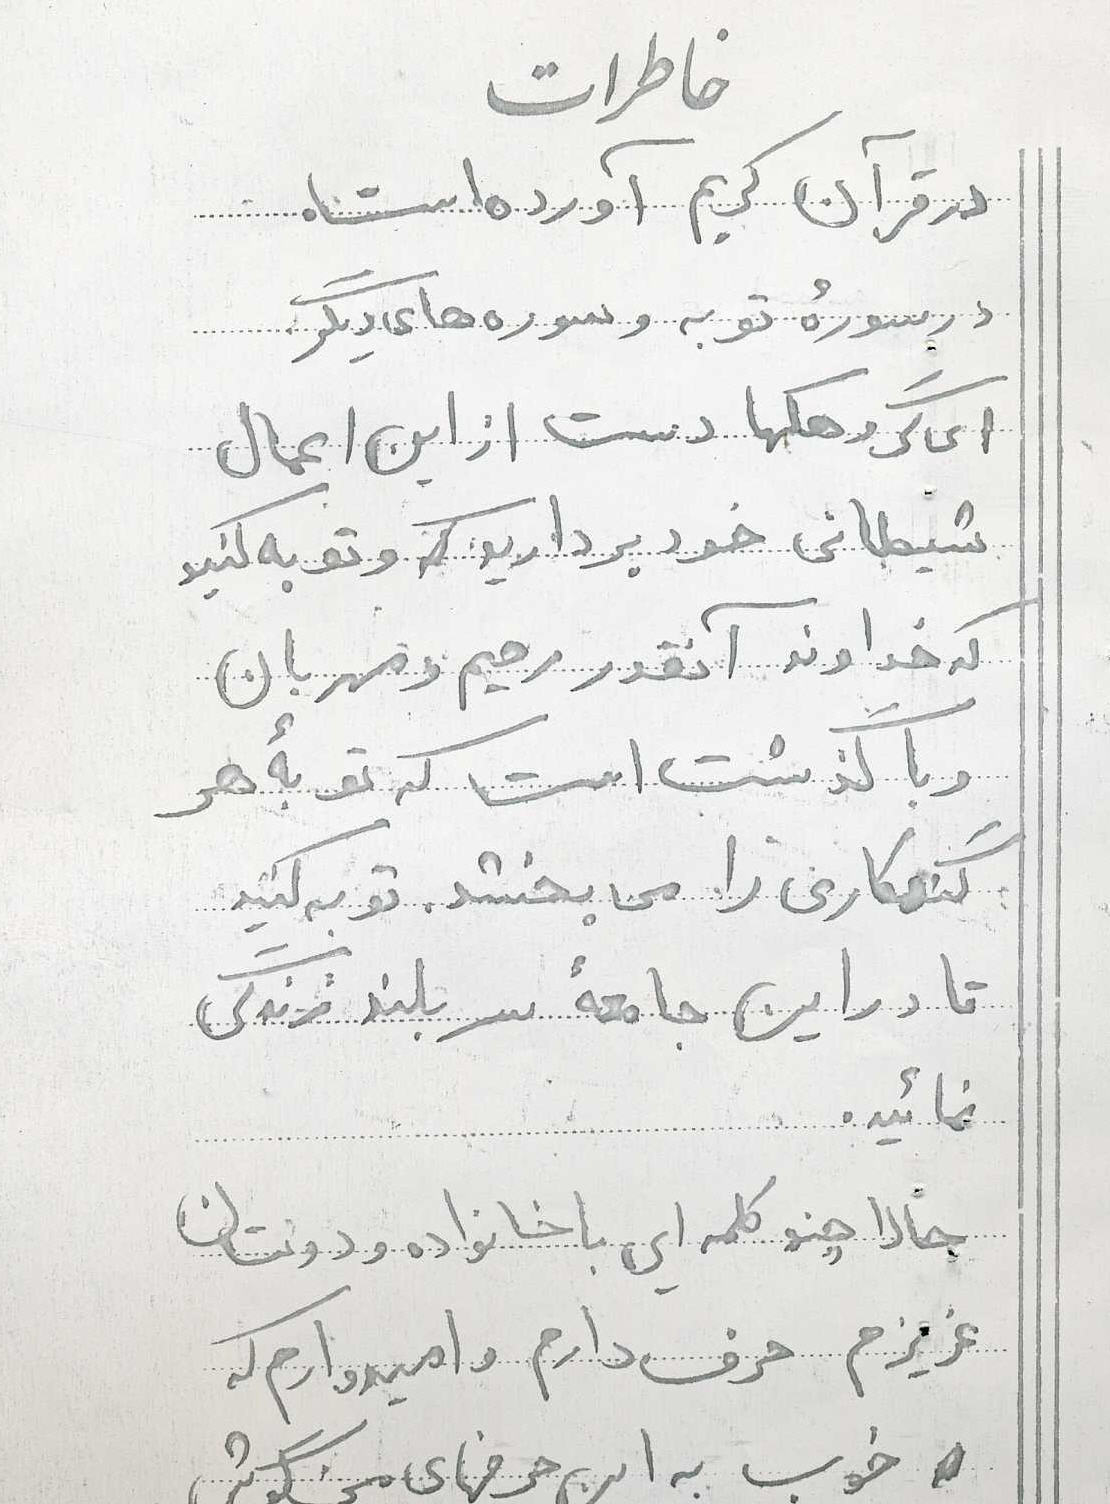 خاطرات
در قرآن کریم آورده است
در سورهٔ توبه و سوره های دیگر
ای گروهکها دست از این اعمال
شیطانی خود بردارید که و توبه کنید
که خداوند آنقدر رحیم و مهربان
و با گذشت است که توبهٔ هر
گنهکاری را می بخشد. توبه کنید
تا در این جامعهٔ سر بلند زندگی
نمائید.
حالا چند کلمه ای با خانواده و دوستان
عزیزم حرف دارم و امیدوارم که
خوب به این حرفهای من گوش